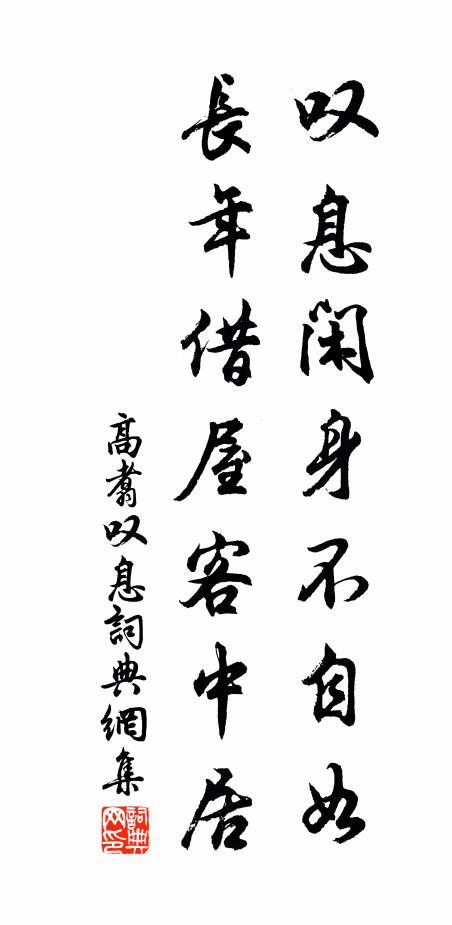 叹息闲身不自如
長年借屋客中居
高翥叹息詞典網集
詞典网印